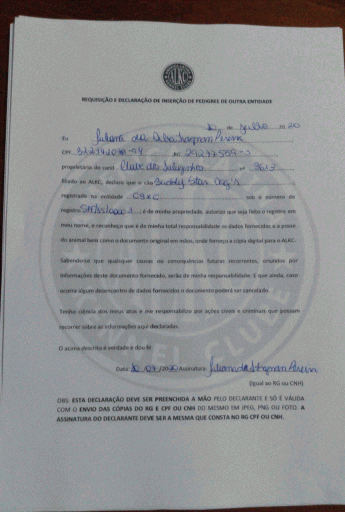 ALKC
REQUISIÇÃO E DECLARAÇÃO DE INSERÇÃO DE PEDIGREE DE OUTRA ENTIDADE
10 de julho de 20
Eu Juliana da Pereira
CPF RG
proprietário do canil Clube do nº 3613
filiado ao ALKC, declaro que o cão Buddy Star Dog's
registrado na entidade CBKC sob o número de
registro , é de minha propriedade, autorizo que seja feito o registro em
meu nome, e reconheço que é de minha total responsabilidade os dados fornecidos e a posse
do animal bem como o documento original em mãos, onde forneço a cópia digital para o ALKC.
Sabendoras que quaisquer causas ou consequências futuras decorrentes, oriundos por
informações deste documento fornecido, serão de minha responsabilidade. E que ainda, caso
ocorra algum desencontro de dados fornecidos o documento poderá ser cancelado.
Tenho ciência dos meus atos e me responsabilizo por ações cíveis e criminais que possam
incorrer sobre as informações aqui declaradas.
O acima descrito é verdade e dou fé
Data: Assinatura: Pereira
(Igual ao RG ou CNH)
OBS: ESTA DECLARAÇÃO DEVE SER PREENCHIDA A MÃO PELO DECLARANTE E SÓ É VÁLIDA
COM O ENVIO DAS CÓPIAS DO RG E CPF OU CNH DO MESMO EM JPEG, PNG OU FOTO. A
ASSINATURA DO DECLARANTE DEVE SER A MESMA QUE CONSTA NO RG CPF OU CNH.